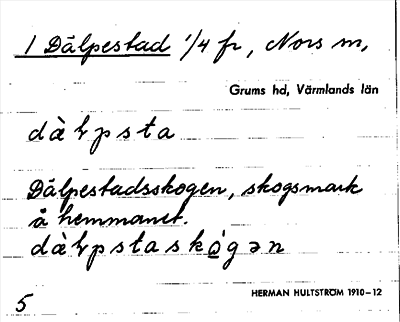 1 Dälpestad 1/4 fr, Nors sn,
Grums hd, Värmlands län
dὰⱡpsta
Dälpestadsskogen, skogsmark
å hemmanet.
dὰⱡpstaskógən
5 HERMAN HULTSTRÖM 1910–12